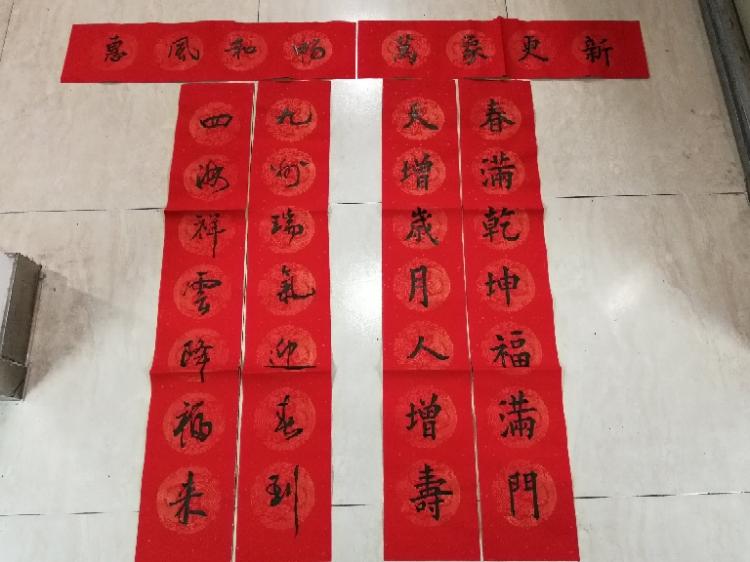 惠風和暢
萬象更新
春滿乾坤福滿門
天增歲月人增壽
九州瑞氣迎春到
四海祥雲降福来